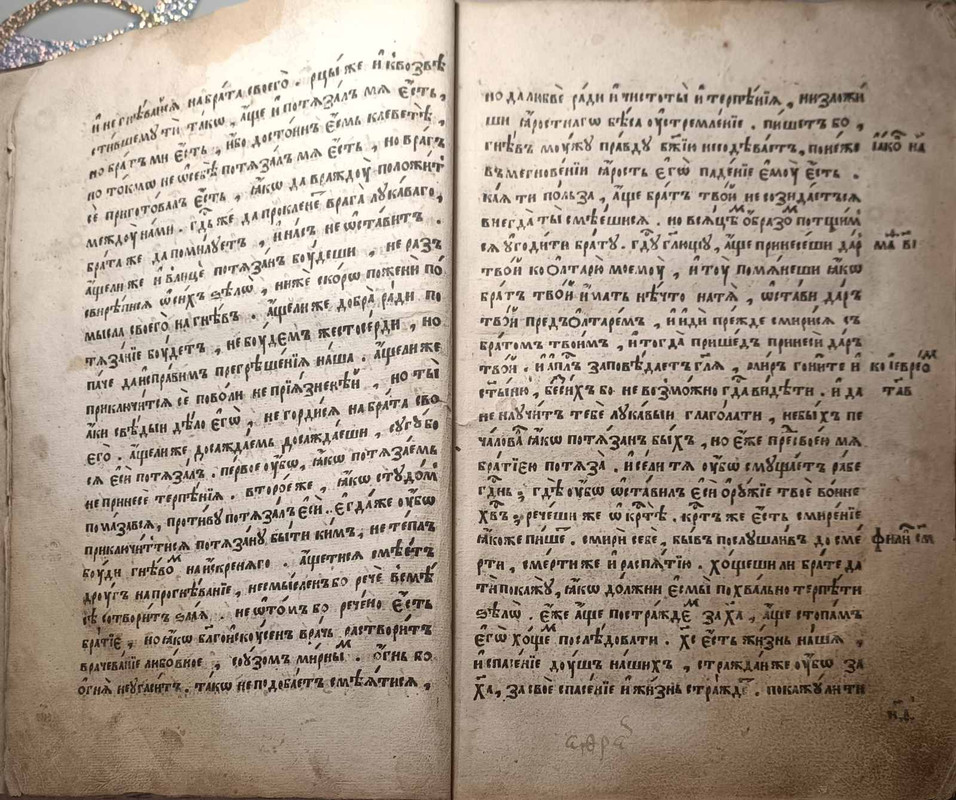 и҆ не гнѣ́вайсѧ на бра́та своего̀ . рцы́ же и҆ квозвѣ
стившемꙋ ти̏ та́кѡ , а҆́ще и҆ потѧза́лъ мѧ є҆́сть ,
но бра́тъ ми є҆́сть , и҆́бо досто́инъ є҆́смь клеветѣ̀ ,
но то́кмѡ не ѡ҆себѣ̀ потѧза́лъ мѧ є҆́сть , но вра́гъ
се приготова́лъ є҆́сть , ꙗ҆́кѡ да враждоу̀ положи́тъ
междоу̀ на́ми . гдь҇ же да проклене́т врага̀ лꙋка́ваго ,
бра́та же да поми́лꙋетъ , и҆ на́съ не ѡ҆ста́витъ .
а҆́щели же и҆ ва́нцѣ потѧза́нъ бꙋ́деши , не ра́зъ
свирѣпи́сѧ ѡ҆ си́хъ ѕѣлѡ̀ , нижѐ ско́рѡ пожени̏ по́
мысла своего̀ на гнѣ́въ . а҆́щели же добра̀ ра́ди по
тѧза́нїе бꙋ́детъ , не бꙋ́демъ жестосе́рди , но
па́че да и҆спра́вимъ прегрѣше́нїѧ на́ша . а҆́щели же
приключи́тсѧ се пово́ли не прїѧ́зненѣй , но ты̀
а҆́ки свѣ́дый дѣ́ло є҆гѡ̀ , не горди́сѧ на бра́та сво
его̀ . а҆́щели же досажда́емь досажда́еши , сꙋгꙋ́бо
сѧ є҆сѝ потѧза́лъ . пе́рвое ᲂу҆́бѡ , ꙗ҆́кѡ потѧза́емь
не принесѐ терпѣ́нїѧ . второ́е же , ꙗ҆́кѡ стꙋдо́мъ
пома́завсѧ , проти́вꙋ потѧза́лъ є҆сѝ . є҆гда́ же ᲂу҆́бѡ
приключи́т тисѧ потѧза́нꙋ бы́ти ки́мъ , не те́плъ
бꙋ́ди гнѣ́вомъ на и҆́скренѧго . а҆́ще тисѧ смѣе́тъ
дрꙋ́гъ на прогнѣ́ванїе , несмы́сленъ бо речѐ всѣ́мѣ
сѣ̀ сотвори́тъ ѕла́ѧ . не ѡ҆ то́мъ бо рече́но є҆́сть
бра́тїе , но ꙗ҆́кѡ благои҆скꙋ́сенъ вра́чь раствори́тъ
врачева́нїе любо́вное , соу́зомъ ми́рны́м . о҆́гнь бо
огнѧ̀ не ᲂу҆гаси́тъ . та́кѡ не подоба́етъ смѣѧ́тисѧ ,
но да любвѐ ра́ди и҆ чистоты̀ и҆ терпѣ́нїѧ , низложи́
ши ꙗ҆́ростнагѡ бѣ́са ᲂу҆стремле́нїе . пи́шетъ бо ,
гнѣ́въ мꙋ́жꙋ пра́вдꙋ бж҃їю не содѣ́ваетъ , поне́же ꙗ҆́кѡ на
въ мегнове́нїи ꙗ҆́рость є҆гѡ̀ паде́нїе є҆мꙋ̀ є҆́сть .
ка́ѧ ти по́льза , а҆́ще бра́тъ тво́й не созида́етъсѧ
внегда̀ ты̀ смѣе́шисѧ . но всѧ́цѣм ѻ҆́бразом потщи́м
сѧ ᲂу҆годи́ти бра́тꙋ . гдꙋ҇ гл҃ющꙋ , а҆́ще принесе́ши да́р
тво́й ко ѻ҆лтарю̀ моемꙋ̀ , и҆ тꙋ̀ помѧне́ши ꙗ҆́кѡ
бра́тъ тво́й и҆́мать нѣ́что натѧ̀ , ѡ҆ста́ви да́ръ
тво́й предъ ѻ҆лтаре́мъ , и҆ и҆дѝ пре́жде смири́сѧ съ
бра́томъ твои́мъ , и҆ тогда̀ прише́дъ принесѝ да́ръ
тво́й . и҆ а҆плъ̑ заповѣ́даетъ гл҃ѧ , о ми́рѣ гони́те и҆ ко і҆евре́о
ст҃ы́ню , беси́хъ бо не возмо́жно гда҇ ви́дѣти . и҆ да
не наꙋчи́тъ тебѐ лꙋка́выи глаго́лати , не бы́хъ пе
чаловаⷧ҇ ꙗ҆́кѡ потѧза́нъ бы́хъ , но є҆́же пресвое́ю мѧ
бра́тїею потѧза̀ . и҆се́ли тѧ ᲂу҆́бѡ смꙋща́етъ ра́бе
гдⷭ҇нь , гдѣ̀ ᲂу҆́бѡ ѡ҆ста́вилъ є҆сѝ ѻ҆рꙋ́жїе твоѐ во́ине
хв҃ъ , рече́ши же ѡ҆ крⷭ҇тѣ̀ . крⷭ҇тъ же є҆́сть смире́нїе
ꙗ҆́коже пи́ше . смирѝ себѐ , бы́въ послꙋшли́въ до сме́
рти , сме́рти же и҆ распѧ́тїю . хо́щеши ли бра́те да
ти̏ покажꙋ̀ , ꙗ҆́кѡ до́лжни є҆смы̀ похва́льно терпѣ́ти
ѕѣлѡ̀ . є҆́же а҆́ще постра́жде за ха҃ , а҆́ще стопа́мъ
є҆гѡ̀ хо́ще послѣ́довати . хс҃ є҆́сть жи́знь на́шѧ ,
и҆ спасе́нїе дꙋ́шъ на́шихъ , стражда́й же ᲂу҆́бѡ за
ха҃ , за своѐ спасе́нїе и҆ жи́знь стра́жде . покажꙋ́ ли ти